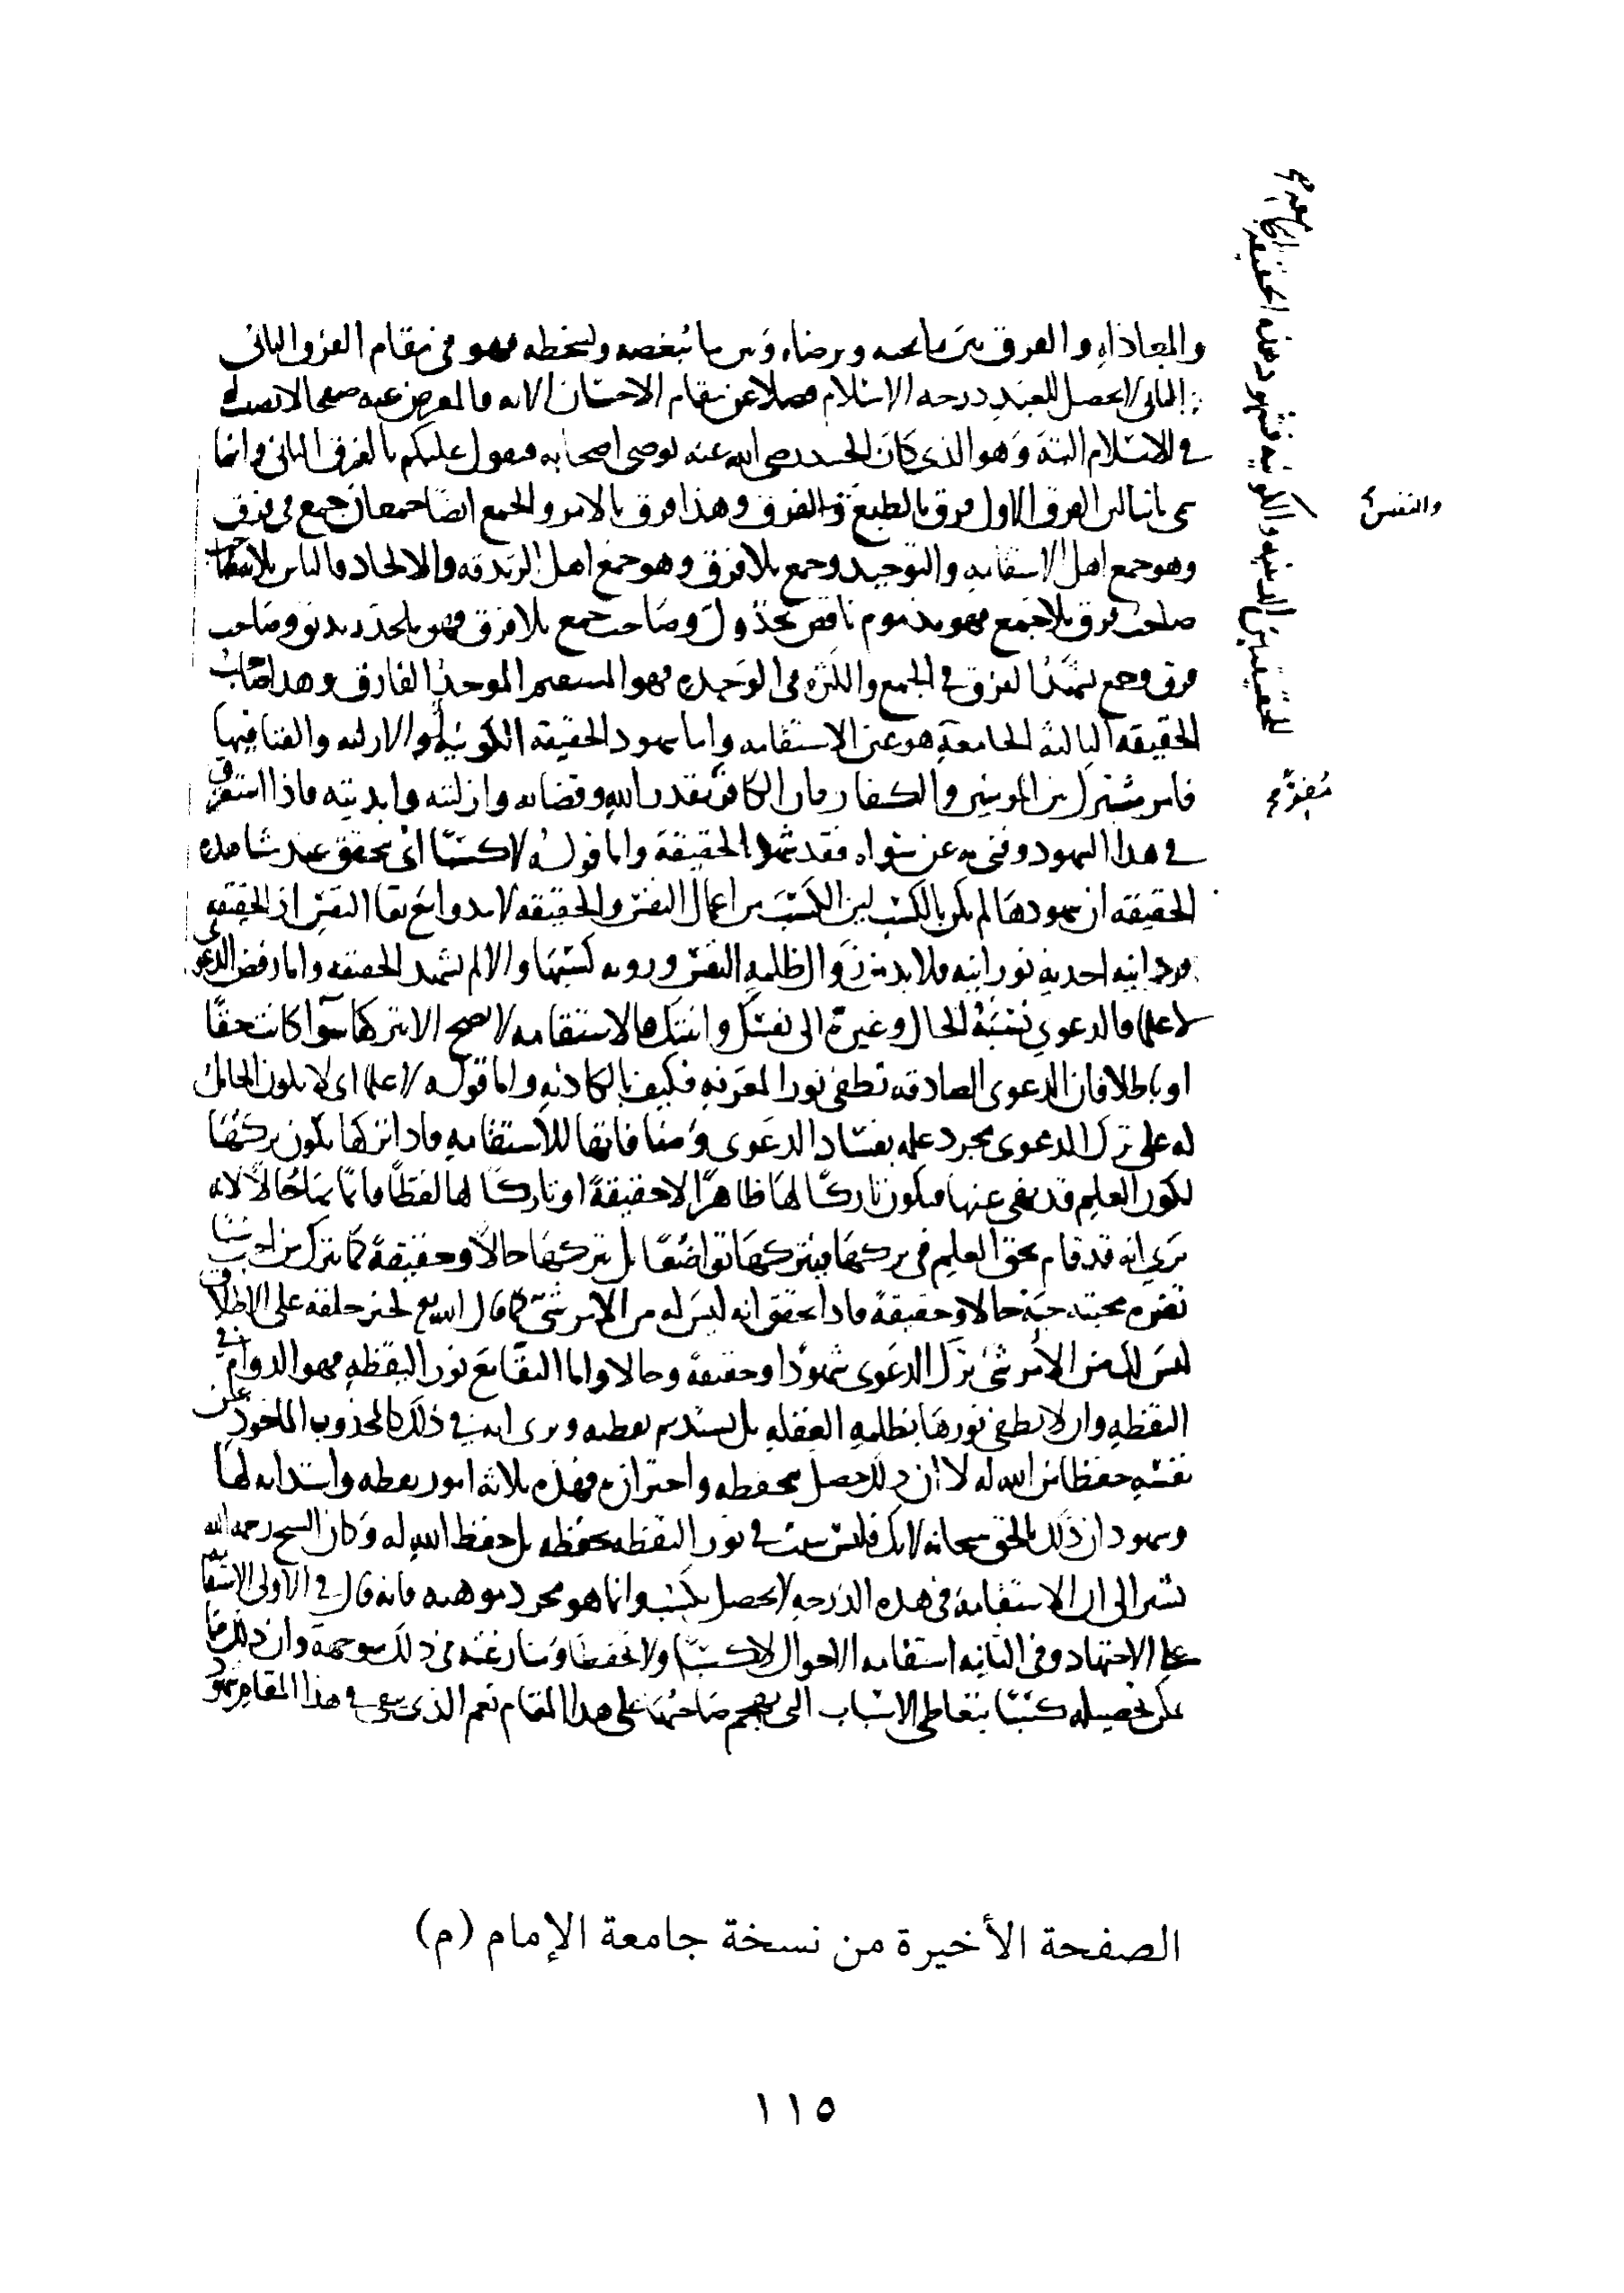 والمعاداه والفرق بين ما يحبه ويرضاه وبين ما يبغضه ويسخطه فهو في مقام الفرق الثاني
الذي لا يحصل للعبد درجه الاسلام فضلا عن مقام الاحسان الا به فالمعرض عنه صفحا لا نصيب له
في الاسلام البتة وهو الذي كان الجنيد رضي الله عنه يوصي اصحابه فيقول عليكم بالفرق الثاني وانما
سمي ثانيا لان الفرق الاول فرق بالطبع والنفس وهذا فرق بالامر والجمع ايضا جمعان جمع في فرق
وهو جمع اهل الاستقامه والتوحيد وجمع بلا فرق وهو جمع اهل الزندقه والالحاد فالناس ثلاثة
صاحب فرق بلا جمع فهو مذموم ناقص مخذول وصاحب جمع بلا فرق فهو ملحد زنديق وصاحب
فرق وجمع يشهد الفرق في الجمع والكثره في الوحده فهو المستقيم الموحد الفارق وهذا صاحب
الحقيقه الثالثة الجامعة هو عين الاستقامه واما شهود الحقيقه الكونيه او الازليه والفنا فيها
فامر مشترك بين المومنين والكفار فان الكافر مقر بقدر الله وقضائه وازليته وابديته فاذا استغرق
في هذا الشهود وفني به عن سواه فقد شهد الحقيقة واما قوله لا كسبا اي يتحقق عند مشاهدة
الحقيقه ان شهودها لم يكن بالكسب لان الكسب من اعمال النفس والحقيقه لا تبدو مع بقا النفس اذ الحقيقه
فردانيه احديه نورانيه فلا بد من زوال ظلمه النفس ورويه كسبها والا لم يشهد الحقيقه واما رفض الدعوى
لا علما فالدعوي نسبة الحال وغيره الى نفسك وانيتك فالاستقامه لا تصح الا بتركها سوا كانت حقا
او باطلا فان الدعوى الصادقه تطفي نور المعرفه فكيف بالكاذبه واما قوله لا علما اي لا يكون الحامل
له على ترك الدعوى مجرد علمه بفساد الدعوى ومنافاتها للاستقامه فاذا تركها يكون تركها
لكون العلم قد نهى عنها فيكون تاركا لها ظاهرا لا حقيقة او تاركا لها لفظا قائما بها حالا لانه
يري انه قد قام بحق العلم في تركها فيتركها تواضعا بل يتركها حالا وحقيقة كما يترك من احب شيئا
تضره محبته حبه حالا وحقيقة فاذا تحقق انه ليس له من الامر شيء كما قال الله لخير خلقه على الاطلاق
ليس لك من الامر شيء ترك الدعوى شهودا وحقيقة وحالا واما البقا مع نور اليقظه فهو الدوام في
اليقظه وان لا يطفي نورها بظلمه الغفله بل يستديم يقظته ويرى انه في ذلك كالمجذوب الماخوذ عن
نفسه حفظا من الله له لا ان ذلك حصل بحفظه واحترازه فهذه ثلاثة امور يقظه واستدامه لها
وشهود ان ذلك بالحق سبحانه لا بك فليس سبب في نور اليقظه بحفظه بل حفظ الله له وكان الشيخ رحمه الله
يشير الى ان الاستقامة في هذه الدرجه لا تحصل بكسب وانما هو مجرد موهبه فانه قال في الاولى الاستقامة
على الاجتهاد وفي الثانيه استقامه الاحوال لا كسبا ولا تحفظا ومنازعته في ذلك متوجهة وان ذلك مما
يمكن تحصيله كسبا بتعاطي الاسباب التي تهجم بصاحبها على هذا المقام نعم الذي ينفى في هذا المقام شهود
للحقيقتين الدينيه والكونيه فشهود هذه الحقيقه الجامعه
والنفس
مقر
الصفحة الأخيرة من نسخة جامعة الإمام (م)
١١٥